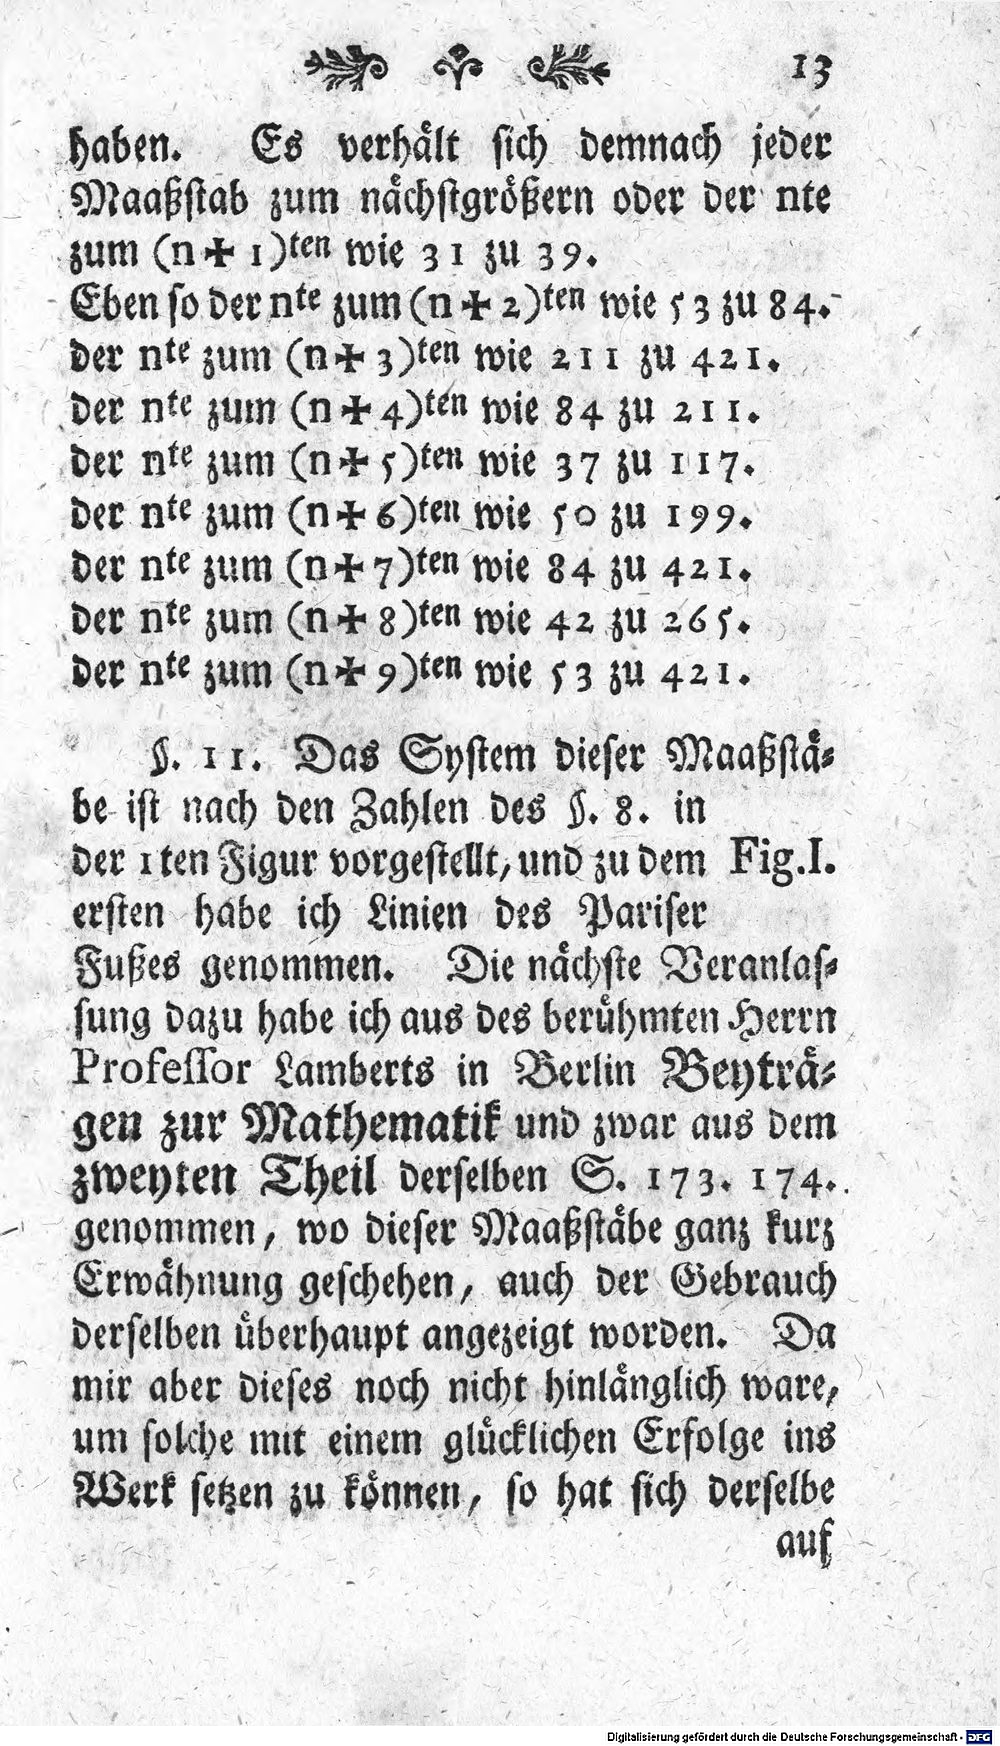 13
haben. Es verhält sich demnach jeder
Maaßstab zum nächstgrößern oder der nte
zum (n + 1)ten wie 31 zu 39.
Eben so der nte zum (n + 2)ten wie 53 zu 84.
der nte zum (n + 3)ten wie 211 zu 421.
der nte zum (n + 4)ten wie 84 zu 211.
der nte zum (n + 5)ten wie 37 zu 117.
der nte zum (n + 6)ten wie 50 zu 199.
der nte zum (n + 7)ten wie 84 zu 421.
der nte zum (n + 8)ten wie 42 zu 265.
der nte zum (n + 9)ten wie 53 zu 421.
§. 11. Das System dieser Maaßstä-
be ist nach den Zahlen des §. 8. in
der 1ten Figur vorgestellt, und zu dem Fig.I.
ersten habe ich Linien des Pariser
Fußes genommen. Die nächste Veranlas-
sung dazu habe ich aus des berühmten Herrn
Professor Lamberts in Berlin Beyträ-
gen zur Mathematik und zwar aus dem
zweyten Theil derselben S. 173. 174.
genommen, wo dieser Maaßstäbe ganz kurz
Erwähnung geschehen, auch der Gebrauch
derselben überhaupt angezeigt worden. Da
mir aber dieses noch nicht hinlänglich ware,
um solche mit einem glücklichen Erfolge ins
Werk setzen zu können, so hat sich derselbe
auf
Digitalisierung gefördert durch die Deutsche Forschungsgemeinschaft - DFG